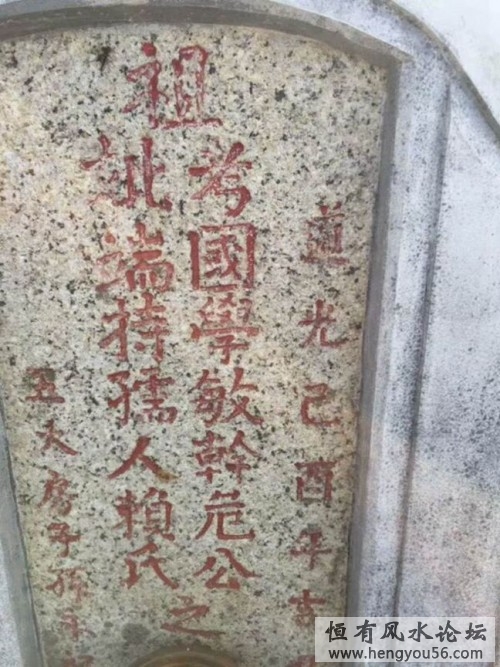 道光己酉年吉
祖
考國學敏幹危公之
妣端持孺人賴氏
五大房子孫立
恒有风水论坛
www.hengyou56.com